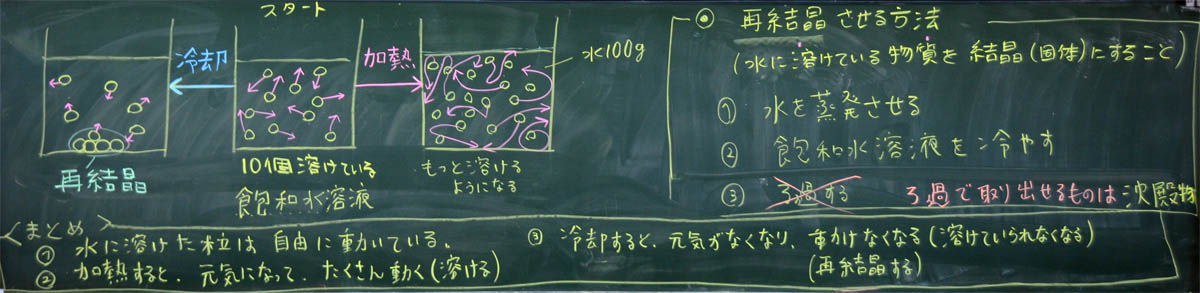 スタート
冷却
加熱
水100g
再結晶
10個溶けている
飽和水溶液
もっと溶ける
ようになる
● 再結晶させる方法
(水に溶けている物質を結晶(固体)にすること)
① 水を蒸発させる
② 飽和水溶液を冷やす
③ ろ過する ろ過で取り出せるものは沈殿物
<まとめ>
① 水に溶けた粒は自由に動いている。
② 加熱すると、元気になって、たくさん動く(溶ける)
③ 冷却すると、元気がなくなり、動けなくなる(溶けていられなくなる)
(再結晶する)